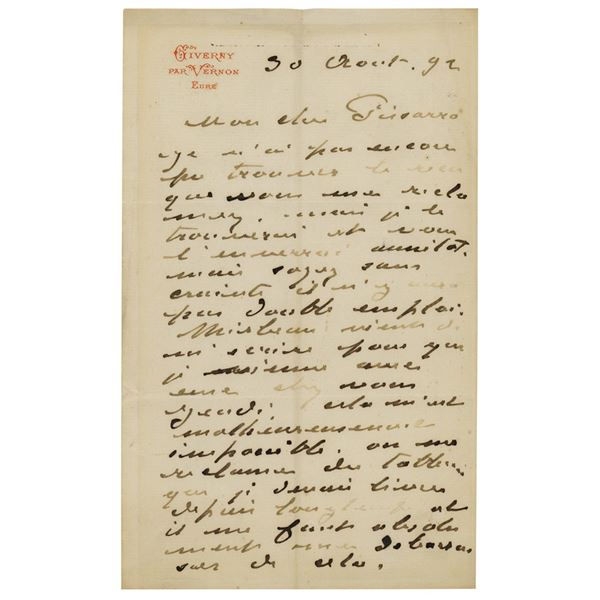 GIVERNY
PAR VERNON
EURE
30 Aout. 92
Mon cher Pissarro
je n'ai pas encore
pu trouver le recu
que vous me récla
mez, mais je le
trouverai et vous
l'enverrai aussitot.
mais soyez sans
crainte il n'y aura
pas double emploi.
Mirbeau vient de
m'écrire pour que
j vienne avec
eux chez vous
jeudi cela m'est
malheureusement
impossible. on me
réclame des tableaux
que j devais livrer
depuis longtemps et
il me faut absolu
ment me debarras
ser de cela.